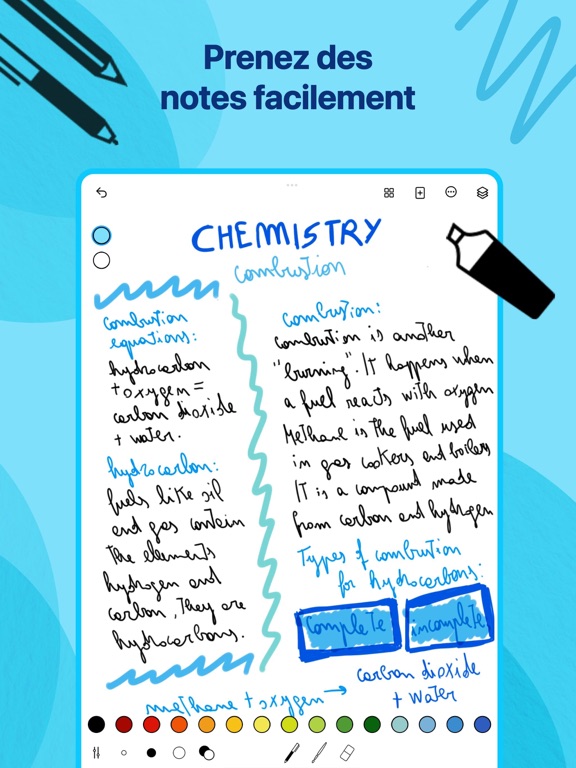 Prenez des
notes facilement
CHEMISTRY
combustion
combustion
equations:
hydrocarbon
+ oxygen =
carbon dioxide
+ water.
hydrocarbon:
fuels like oil
and gas contain
the elements
hydrogen and
carbon, They are
hydrocarbons.
combustion:
combustion is another
"burning". IT happens when
a fuel reacts with oxygen
Methane is the fuel used
in gas cookers and boilers
IT is a compound made
from carbon and hydrogen
Types of combustion
for hydrocarbons:
complete
incomplete
methane + oxygen →
carbon dioxide
+ water